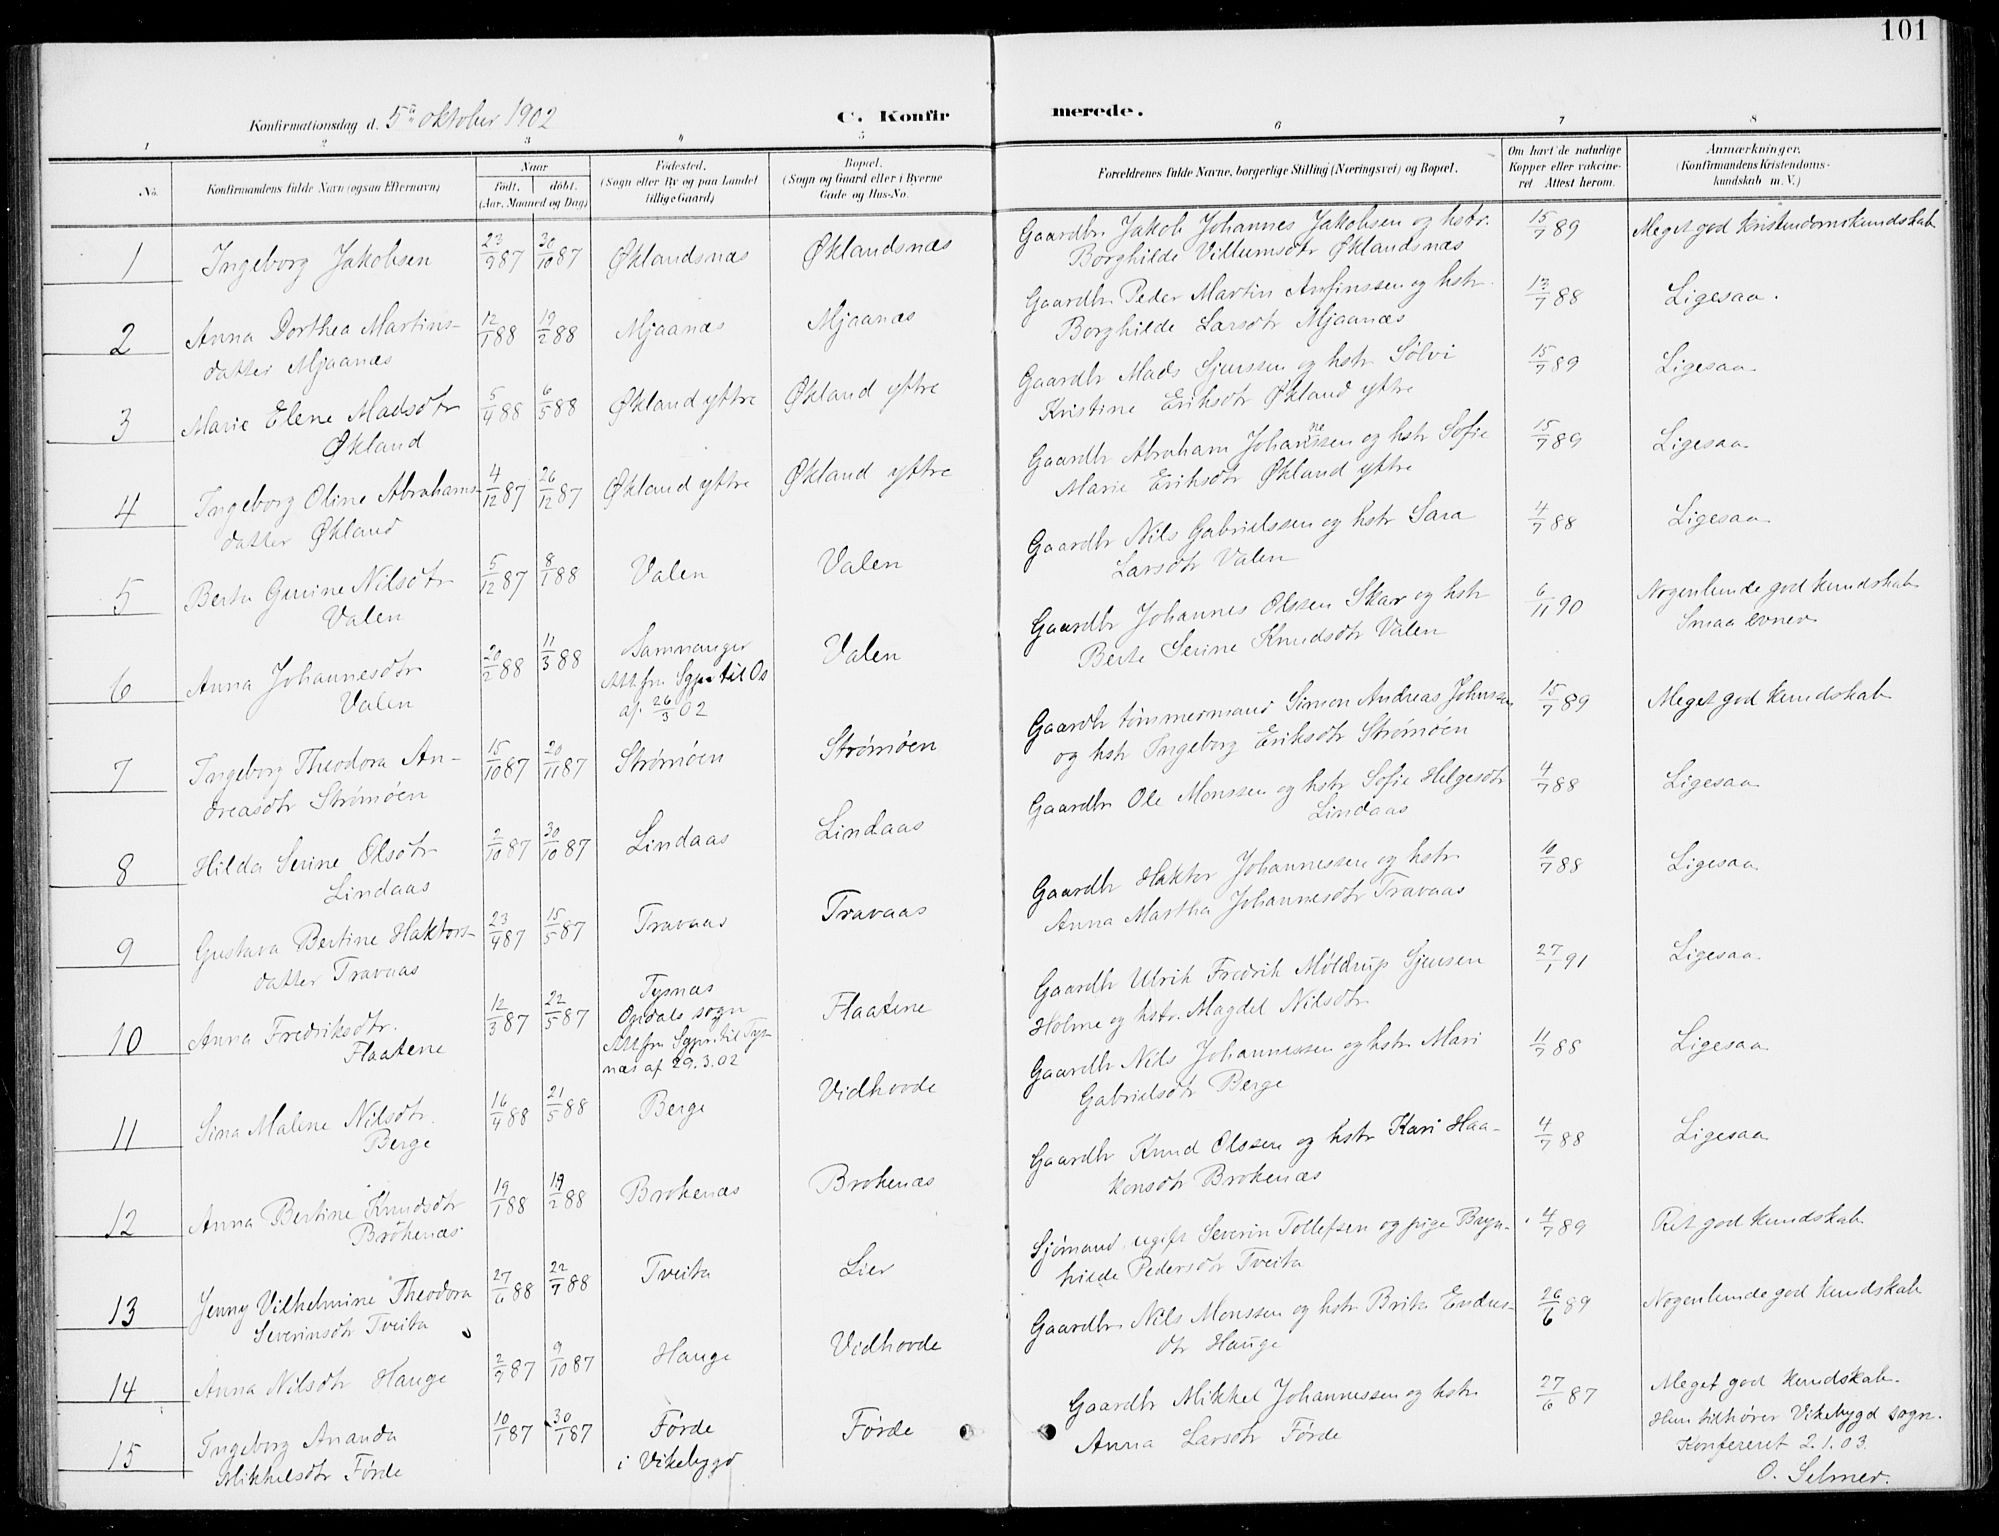 101
Konfirmationsdag d. 5te oktober 1902
C. Konfirmerede.
1 2 3 4 5 6 7 8
No.
Konfirmandens fulde Navn (ogsaa Efternavn)
Naar
Født. døbt.
(Aar, Maaned og Dag)
Fødested.
(Sogn eller By og paa Landet
tillige Gaard)
Bopæl.
(Sogn og Gaard eller i Byerne
Gade og Hus-No.
Forældrenes fulde Navne, borgerlige Stilling (Næringsvei) og Bopæl.
Om havt de naturlige
Kopper eller vakcine-
ret Attest herom.
Anmærkninger.
(Konfirmandens Kristendoms-
kundskab m.V.)
1 Ingeborg Jakobsen 23/9 87 30/10 87 Øklandsnæs Øklandsnæs Gaardbr. Jakob Johannes Jakobsen og hstr. 15/7 89 Meget god kristendomskundskab
Borghilde Villumsdtr Øklandsnæs
2 Anna Dorthea Martins- 12/1 88 19/2 88 Mjaanæs Mjaanæs Gaardbr. Peder Martin Anfinssen og hstr. 13/7 88 Ligesaa.
datter Mjaanæs Borghilde Larsdtr Mjaanæs
3 Marie Elene Madsdtr 5/4 88 6/5 88 Økland yttre Økland yttre Gaardbr Mads Sjurssen og hstr Sølvi 15/7 89 Ligesaa
Økland Kristine Eriksdtr Økland yttre
4 Ingeborg Oline Abrahams- 4/12 87 26/12 87 Økland yttre Økland yttre Gaardbr Abraham Johannessen og hstr Sofie 15/7 89 Ligesaa
datter Økland Marie Eriksdtr Økland yttre
5 Berta Gurine Nilsdtr 5/12 87 8/1 88 Valen Valen Gaardbr Nils Gabrielssen og hstr Sara 4/7 88 Ligesaa
Valen Larsdtr Valen
6 Anna Johannesdtr 20/2 88 11/3 88 Samnanger Valen Gaardbr Johannes Olssen Skar og hstr 6/11 90 Nogenlunde god kundskab
Valen Att fra Sgpr til Os Berte Serine Knudsdtr Valen Smaa evner
af 26/3 02
7 Ingeborg Theodora An- 15/10 87 20/11 87 Strømøen Strømøen Gaardbr tømmermand Simon Andreas Johnssen 15/7 89 Meget god kundskab
dreasdtr Strømøen og hstr Ingeborg Eriksdtr Strømøen
8 Hilda Serine Olsdtr 2/10 87 30/10 87 Lindaas Lindaas Gaardbr Ole Monssen og hstr Sofie Helgesdtr 4/7 88 Ligesaa
Lindaas Lindaas
9 Gustava Bertine Haktors- 23/4 87 15/5 87 Travaas Travaas Gaardbr Haktor Johannessen og hstr 10/7 88 Ligesaa
datter Travaas Anna Martha Johannesdtr Travaas
10 Anna Fredriksdtr. 12/3 87 22/5 87 Tysnæs Flaatene Gaardbr Ulrik Fredrik Møldrup Sjursen 27/1 91 Ligesaa
Flaatene Opdals sogn Holme og hstr. Magdel Nilsdtr
Att fra Sgpr. til Tys-
næs af 29.3.02
11 Sina Malene Nilsdtr. 16/4 88 21/5 88 Berge Vidhovde Gaardbr Nils Johannessen og hstr Mari 11/7 88 Ligesaa
Berge Gabrielsdtr Berge
12 Anna Bertine Knudsdtr 19/1 88 19/2 88 Brokenæs Brokenæs Gaardbr Knud Olssen og hstr Kari Haa- 4/7 88 Ligesaa
Brokenæs konsdtr Brokenæs
13 Jenny Vilhelmine Theodora 27/6 88 22/7 88 Tveita Lier Sjømand, ugift Severin Tollefsen og pige Bryn- 4/7 89 Ret god kundskab
Severinsdtr Tveita hilde Pedersdtr Tveita
14 Anna Nilsdtr Hauge 2/9 87 9/10 87 Hauge Vidhovde Gaardbr. Nils Monssen og hstr Brita Endres- 26/6 89 Nogenlunde god kundskab
dtr Hauge
15 Ingeborg Ananda 10/1 87 30/1 87 Førde Førde Gaardbr Mikkel Johannessen og hstr 27/6 87 Meget god kundskab.
Mikkelsdtr Førde i Vikebygd Anna Larsdtr Førde Hun tilhører Vikebygd sogn.
Konfereret 2.1.03.
O. Selmer.